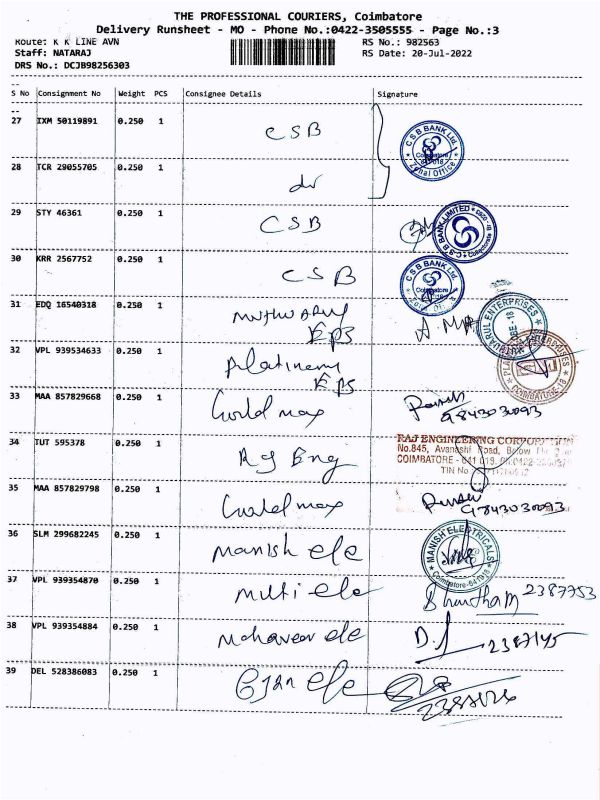 THE PROFESSIONAL COURIERS, Coimbatore
Delivery Runsheet - MO - Phone No.:0422-3505555 - Page No.:3
Route: K K LINE AVN RS No.: 982563
Staff: NATARAJ RS Date: 20-Jul-2022
DRS No.: DCJB98256303
S No Consignment No Weight PCS Consignee Details Signature
27 IXM 50119891 0.250 1 CSB
CSB BANK Ltd. Coimbatore 641 018 Zonal Office
28 TCR 29055705 0.250 1
29 STY 46361 0.250 1 CSB
CSB BANK LIMITED
30 KRR 2567752 0.250 1 CSB
CSB BANK Ltd. Coimbatore
31 EDQ 16540318 0.250 1
ENTERPRISES
32 VPL 939534633 0.250 1
ENTERPRISES COIMBATORE-18
33 MAA 857829668 0.250 1 9843030093
34 TUT 595378 0.250 1 RJ Eng
RAJ ENGINEERING CORPORATION
No.845, Avanashi Road, Below
COIMBATORE - 641 018.
TIN No
35 MAA 857829798 0.250 1 9843030093
36 SLM 299682245 0.250 1 Manish ele
MANISH ELECTRICALS Coimbatore-641018
37 VPL 939354870 0.250 1 Multi ele 2387753
38 VPL 939354884 0.250 1 Mahaveer ele 2387145
39 DEL 528386083 0.250 1 ele